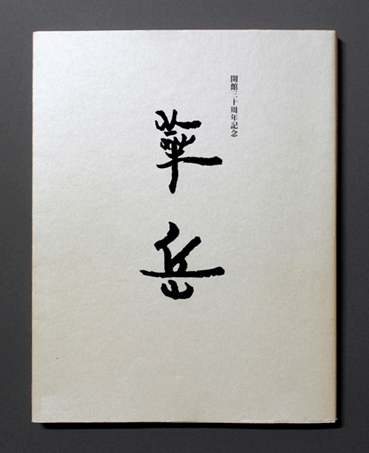 開館三十周年記念
華岳